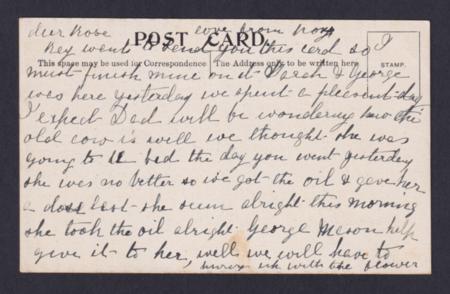 dear Rose love from Roy
POST CARD.
Rey went & send you this card so I
This space may be used for Correspondence The Address only to be written here
STAMP.
must finish mine on it Sarah & George
was here yesterday we spent a pleasent day
I expect Dad will be wondering how the
old cow is well we thought she was
going to bed the day you went yesterday
she was no better so we got the oil & gave her
a dose last she seem alright this morning
she took the oil alright George Mason help
give it to her, well we will have to
with the flower